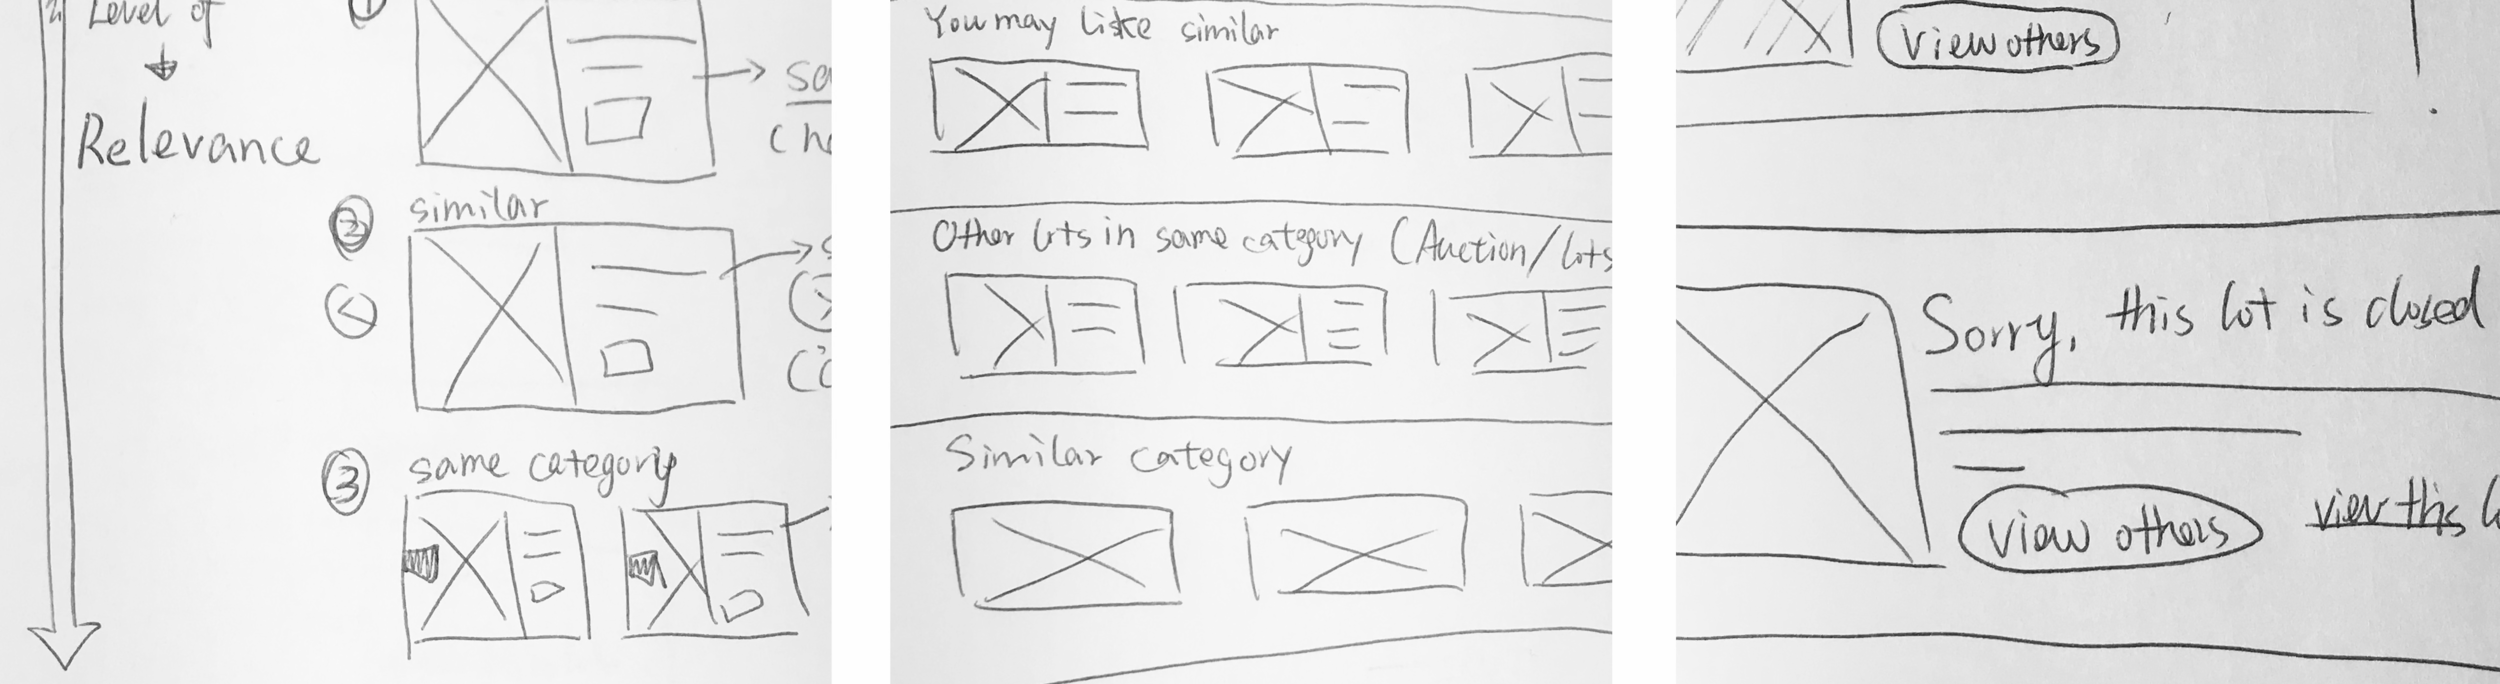 Level of
Relevance
1
2 similar
3 same category
You may like similar
Other lots in same category (Auction/lots
Similar category
View others
Sorry, this lot is closed
View others
view this